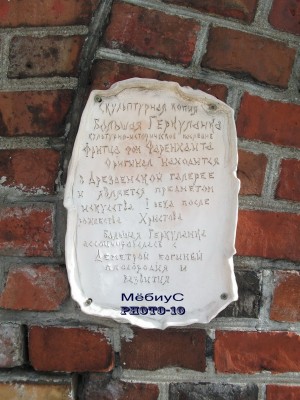 Скульптурная копия
Большая Геркуланка
культурно-историческое
Фритца фон Фаренхайта
Оригинал находится
в Дрезденской галерее
и является предметом
искусства I века после
Христова
Большая Геркуланка
с
Деметрой богиней
плодородия и
развития
МёбиуС
PHOTO-10